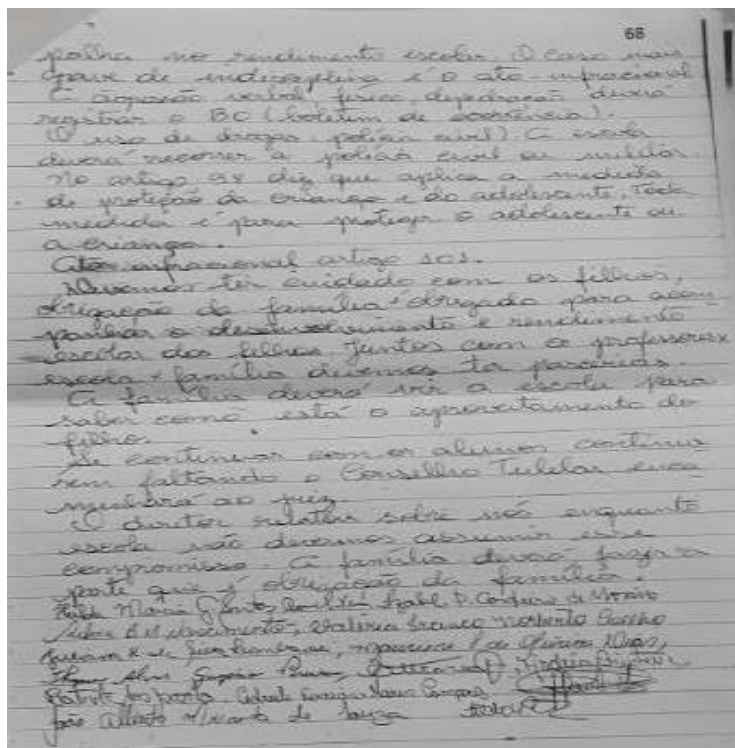 68
palha no rendimento escolar. O caso mais
grave de indisciplina é o ato infracional
E agressão verbal, física, depedração deverá
registrar o BO (boletim de ocorrência).
O uso de drogas polícia civil) A escola
deverá recorrer a polícia civil ou militar.
No artigo 98 diz que aplica a medida
de proteção da criança e do adolescente, toda
medida é para proteger o adolescente ou
a criança.
Ato infracional artigo 103.
Devemos ter cuidado com os filhos,
obrigação da família obrigado para acom
panhar o desenvolvimento e rendimento
escolar dos filhos. Juntos com os professores
escola família devemos ter parcerias
A família deverá vir a escola para
saber como está o aproveitamento do
filho.
Se continuar com os alunos continua
rem faltando o Conselho Tutelar enca
minhará ao juiz.
O diretor relatou sobre nós enquanto
escola não devemos assumir esse
compromisso. A família deverá fazer a
parte que é obrigação da família.
Maria Isabel de Moraes
Nascimento, Valeria Norberto
de Oliveira
João Alberto de Souza